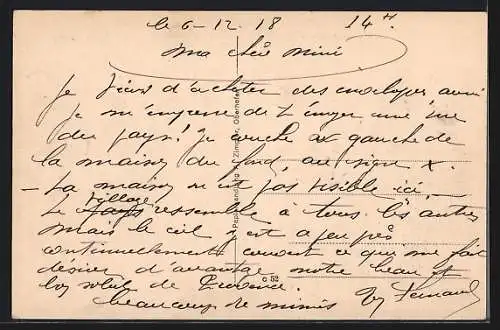 le 6-12-18 14H
ma chère mimi
Je viens d'acheter des enveloppes aussi
je m'empresse de t'envoyer une vue
du pays! Je couche à gauche de
la maison du fond, au signe x.
- La maison n'est pas visible ici -
Le village ressemble à tous les autres
mais le ciel est à peu près
continuellement couvert ce qui me fait
désirer davantage notre beau et
bon soleil de Provence.
beaucoup de mimis Ton Fernand
C 52